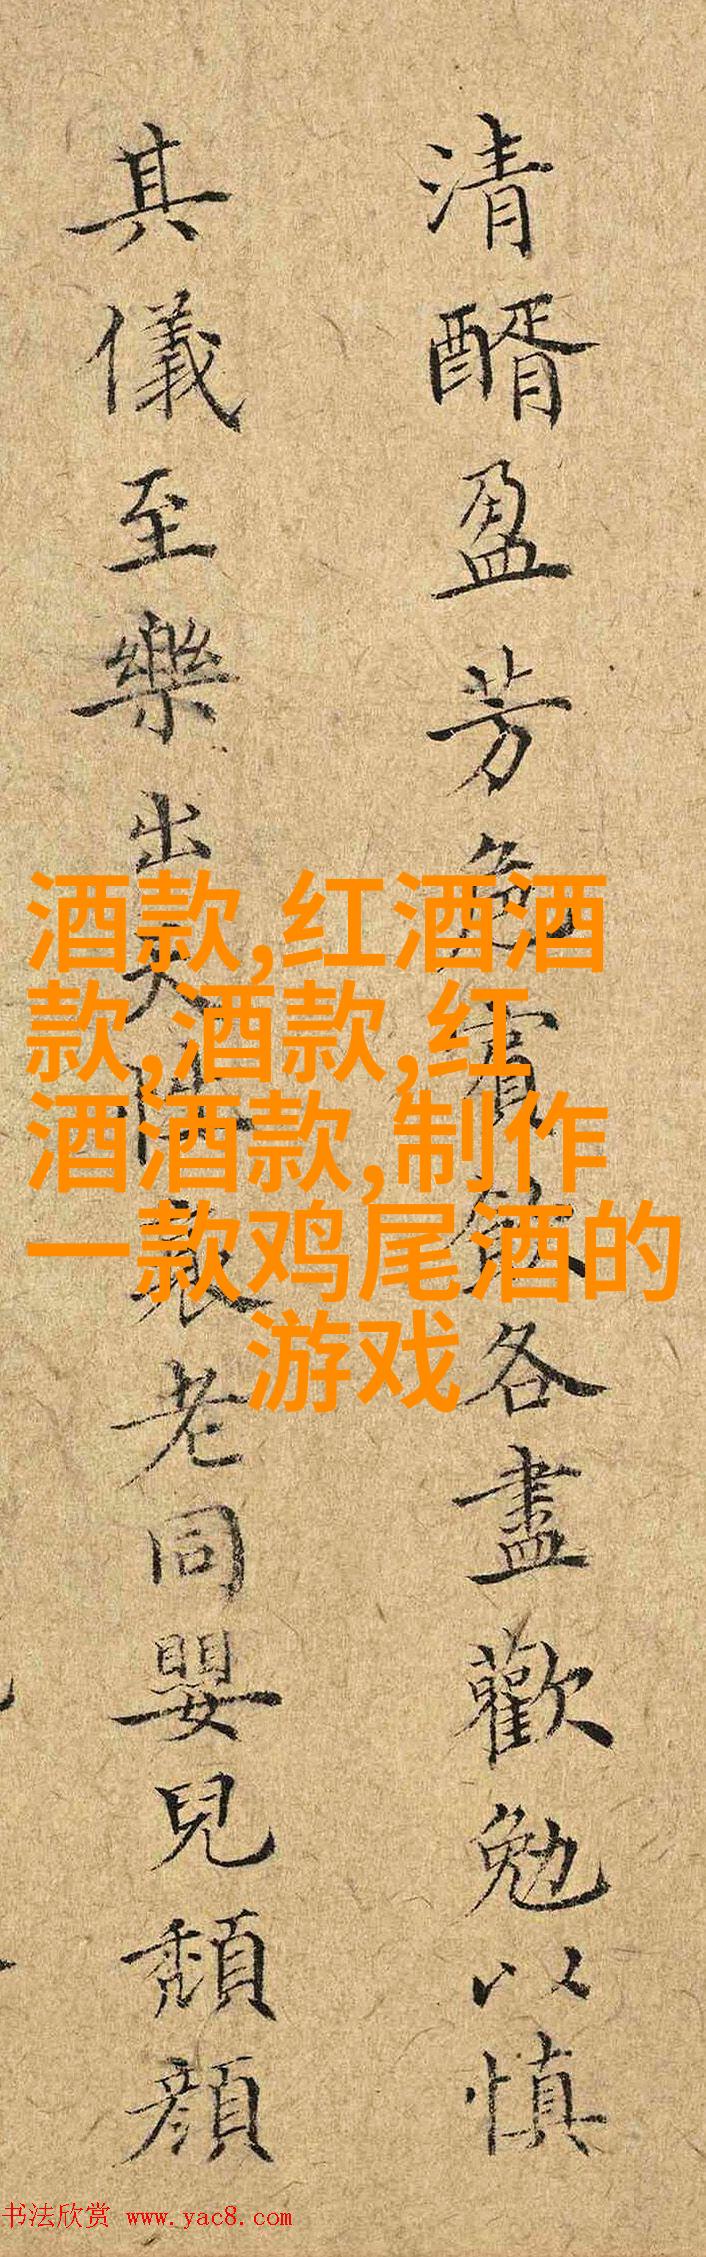 清醑盈芳賓飲各盡歡勉以慎
其儀至樂出天衰老同嬰兒頹顏
酒款,红酒酒
款,酒款,红
酒酒款,制作
一款鸡尾酒的
游戏
书法欣赏 www.yac8.com